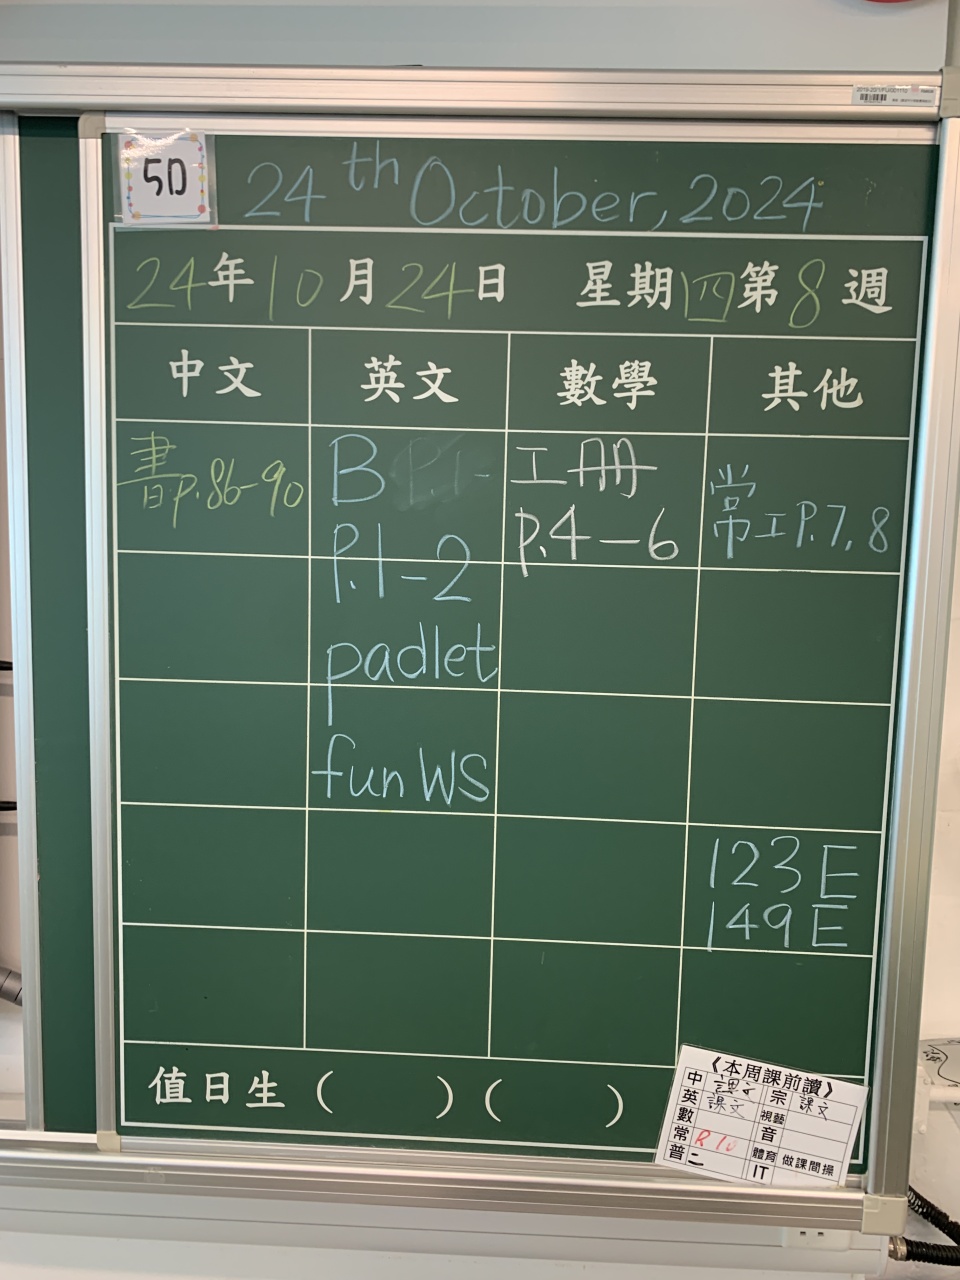 5D
24th October, 2024
24年10月24日 星期四第8週
中文 英文 數學 其他
書p.86-90
B P.1-
P.1-2
padlet
fun WS
工冊
p.4-6
常
常工P.7,8
123E
149E
值日生( )( )
《本周課前讀》
中 課文 宗 課文
英 課文 視藝
數 音
常 R10 體育 做課間操
普 二 IT